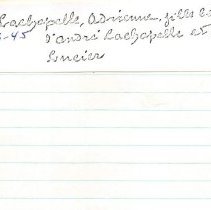 Lachapelle, Adrienne, fille
-45 d'André Lachapelle et
Lucier